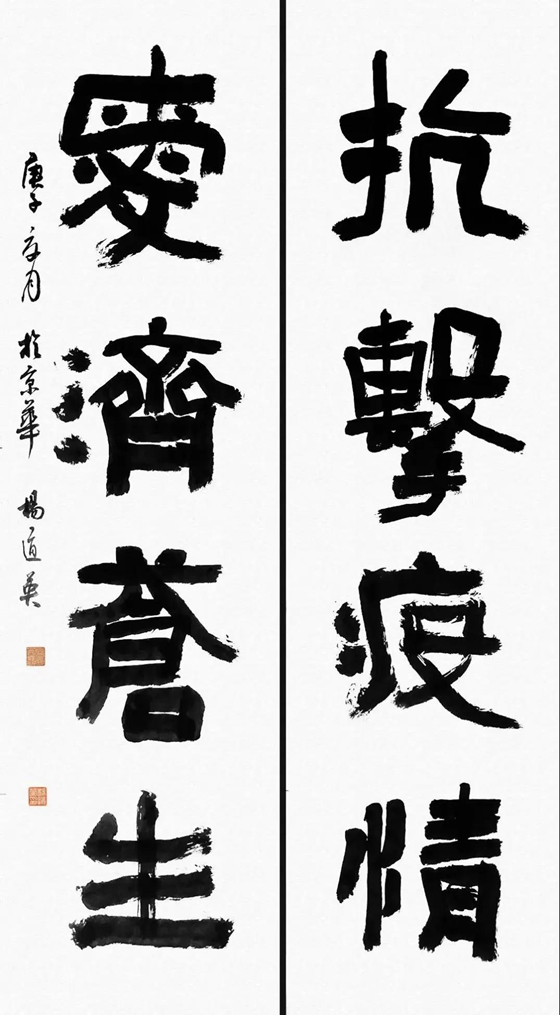 抗擊疫情
愛濟蒼生
庚子 月 於京華 楊道英